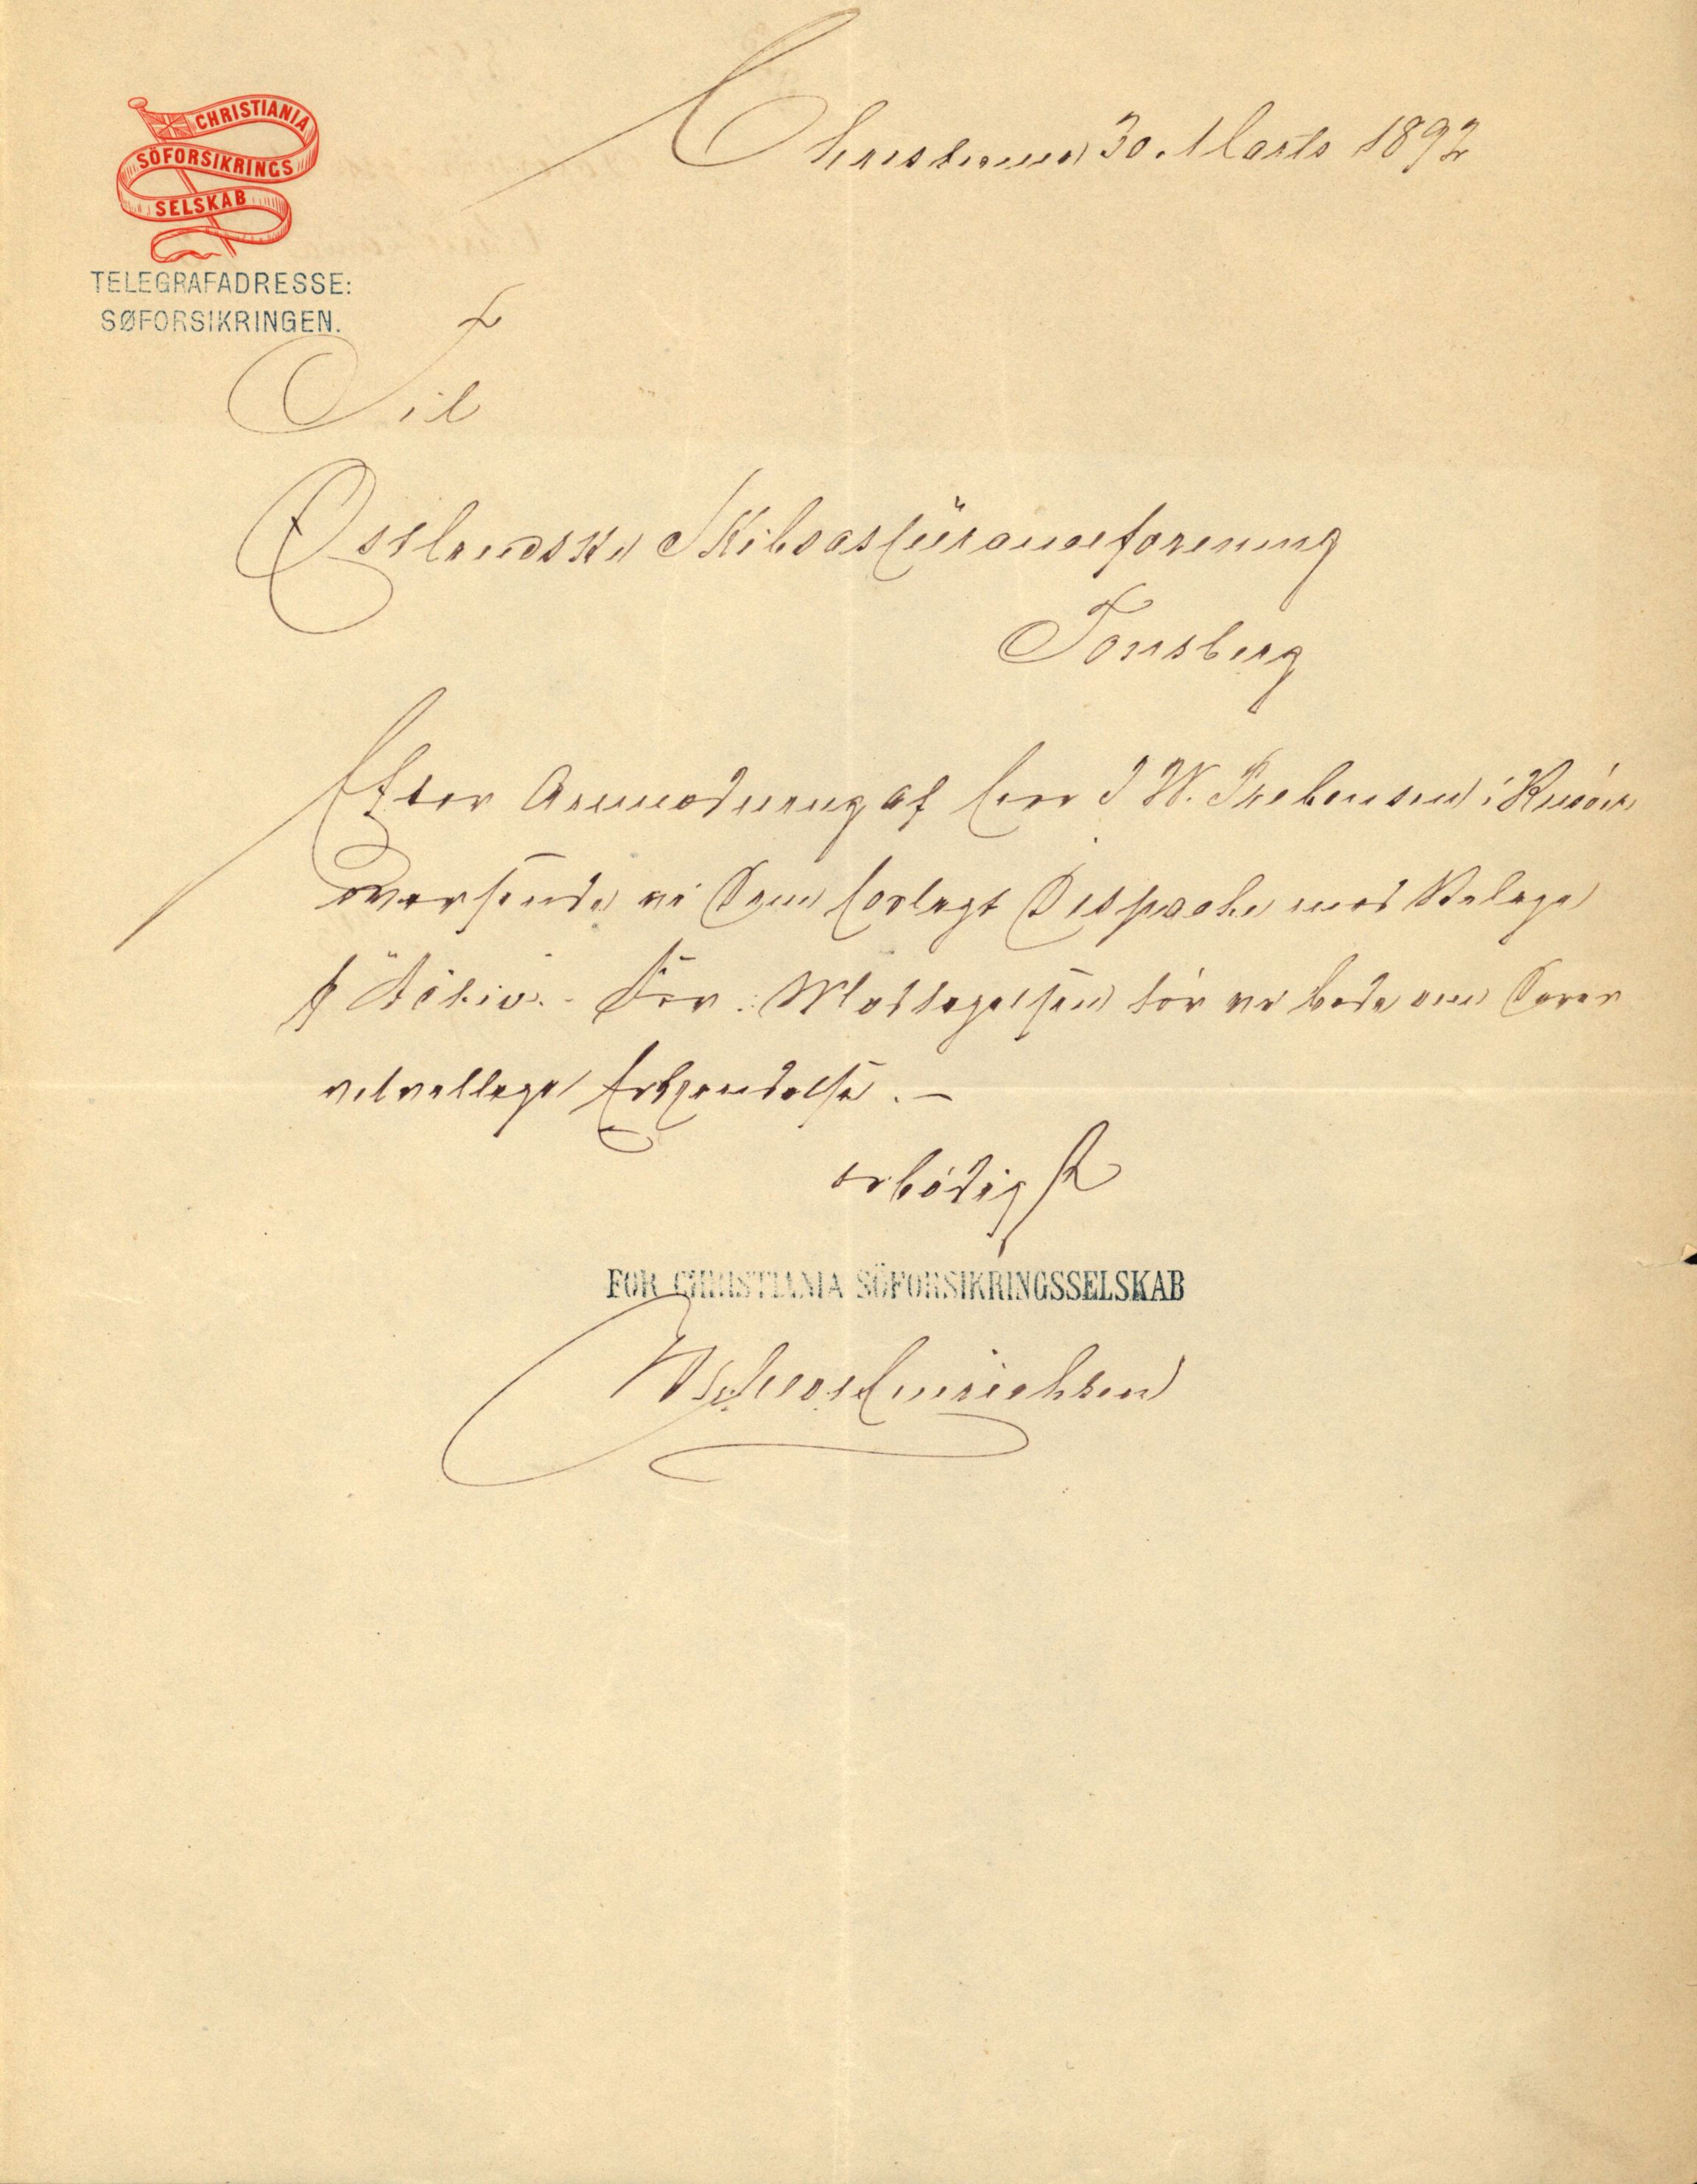 CHRISTIANIA
SÖFORSIKRINGS
SELSKAB
TELEGRAFADRESSE:
SØFORSIKRINGEN.
Christiania 30. Marts 1892
Til
Østlandske Skibsassüranceforening
Tönsberg
Efter Anmodning af Herr J W. Prebensen i Risör
oversende vi Dem hoslagt Dispache med Bilage
pr "Activ". - For Modtagelsen tör vi bede om Deres
velvillige Erkjendelse. -
Ærbödigst
FOR CHRISTIANIA SÖFORSIKRINGSSELSKAB